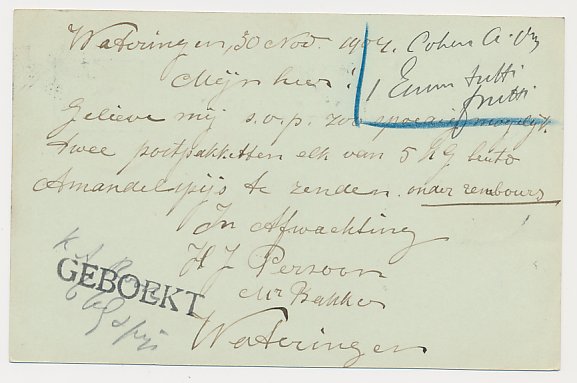 Wateringen, 30 Nov. 1904. Cohen
Mijnheer!
1 Emm tutti
frutti
Gelieve mij s.v.p. zoo spoedig mogelijk
twee postpakketten elk van 5 KG bruto
Amandelspijs te zenden. onder rembours
In Afwachting
H J Persoon
Mr Bakker
Wateringen
GEBOEKT
spijs